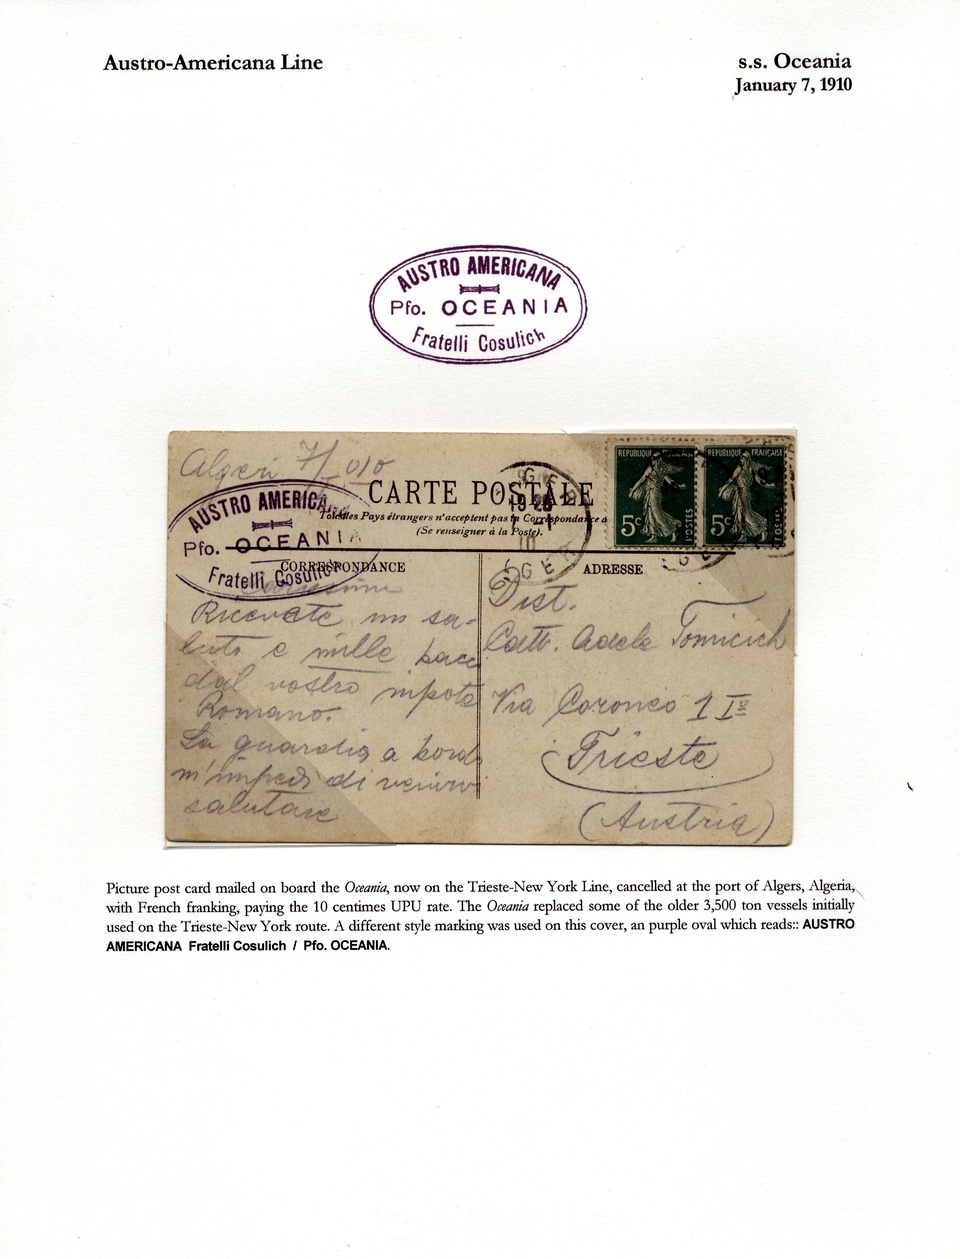 Austro-Americana Line
s.s. Oceania
January 7, 1910
AUSTRO AMERICANA
Pfo. OCEANIA
Fratelli Cosulich
Algeri 7/1 010
CARTE POSTALE
Tous les Pays étrangers n'acceptent pas la Correspondance a
(Se renseigner à la Poste).
REPUBLIQUE FRANÇAISE
5c
POSTES
REPUBLIQUE FRANÇAISE
5c
POSTES
AUSTRO AMERICA
Pfo. OCEANIA
Fratelli Cosulich
CORRESPONDANCE
ADRESSE
Carissimi
Ricevete un sa-
luto e mille baci
dal vostro nipote
Romano.
La guardia a bordo
m'impedì di venirvi
salutare
Dist.
Adele Tomicich
Via Coroneo 1 I
Trieste
(Austria)
Picture post card mailed on board the Oceania, now on the Trieste-New York Line, cancelled at the port of Algers, Algeria,
with French franking, paying the 10 centimes UPU rate. The Oceania replaced some of the older 3,500 ton vessels initially
used on the Trieste-New York route. A different style marking was used on this cover, an purple oval which reads:: AUSTRO
AMERICANA Fratelli Cosulich / Pfo. OCEANIA.